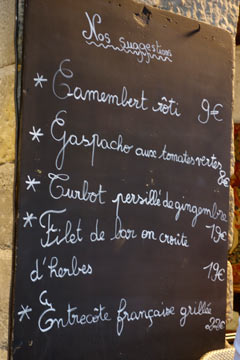 Nos suggestions
* Camembert rôti 9€
* Gaspacho aux tomates vertes 8€
* Turbot persillé de gingembre 19€
* Filet de bar en croûte
d'herbes 19€
* Entrecôte française grillée 22€